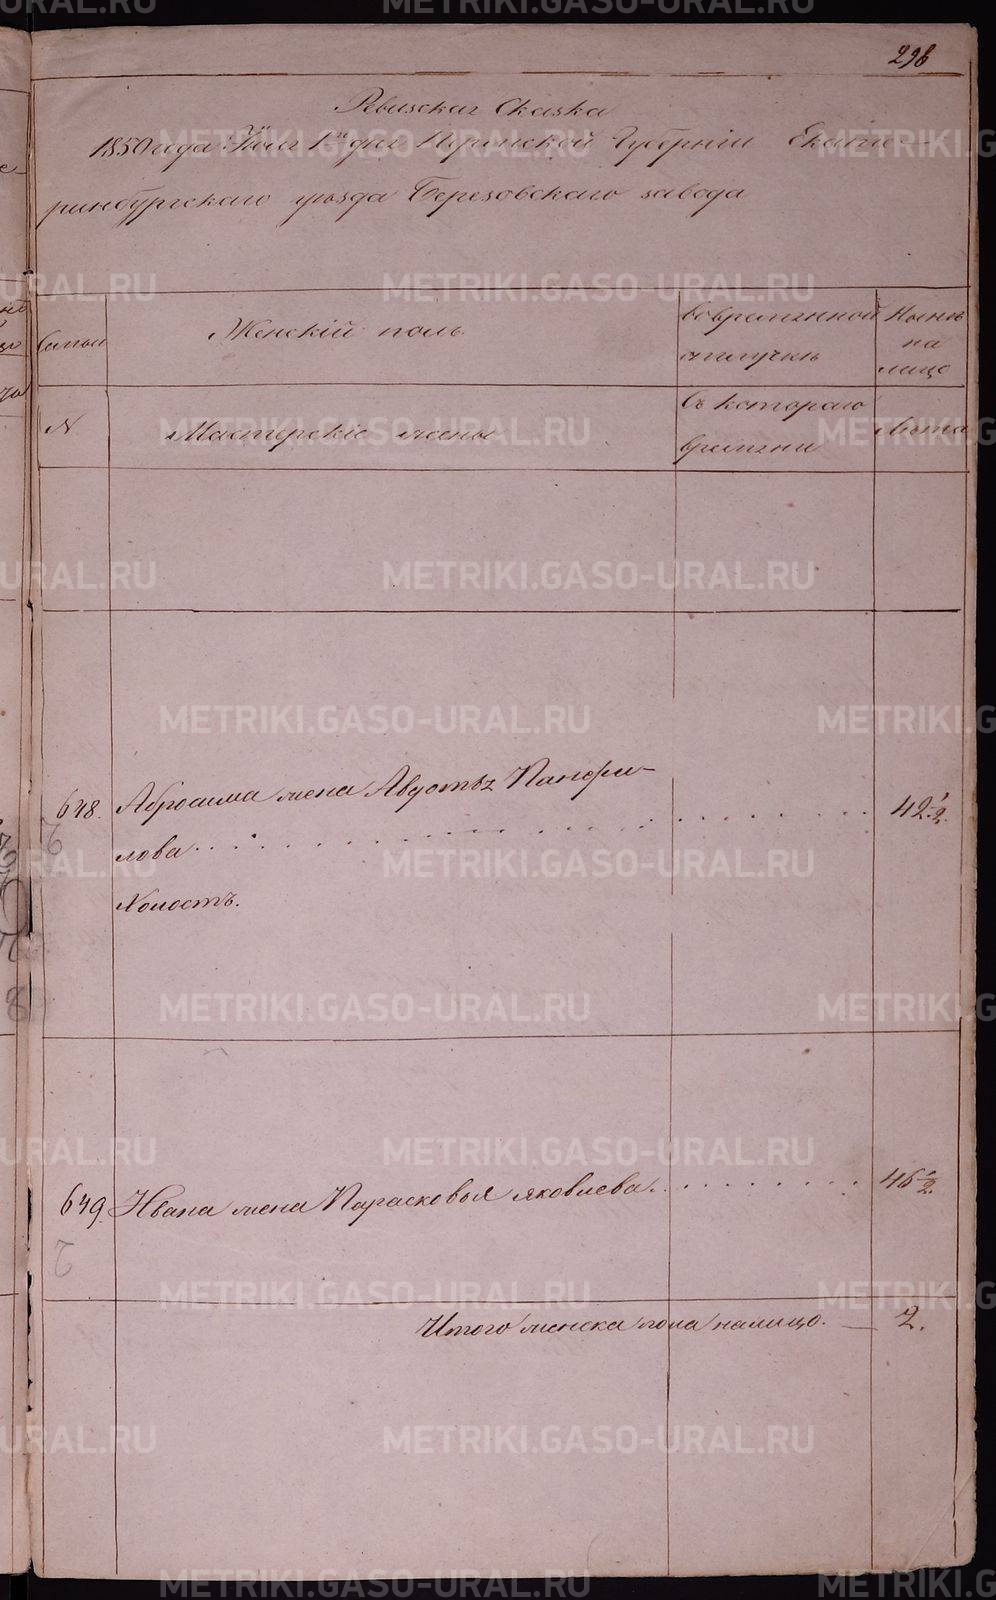 298
Ревизская Сказка
1850 года Июля 1го дня Пермской Губернiи Екате-
ринбургскаго уѣзда Березовскаго завода
Семьи
Женскiй полъ
во временной
отлучкѣ
Нынѣ
на
лицо
N
Мастерскiе жены
съ котораго
времени
Лѣта
648. Абросима жена Авдотья Панфи-
лова 42 1/2.
Холостъ.
649. Ивана жена Парасковья яковлева 46 1/2.
Итого женска пола налицо. — 2.
METRIKI.GASO-URAL.RU